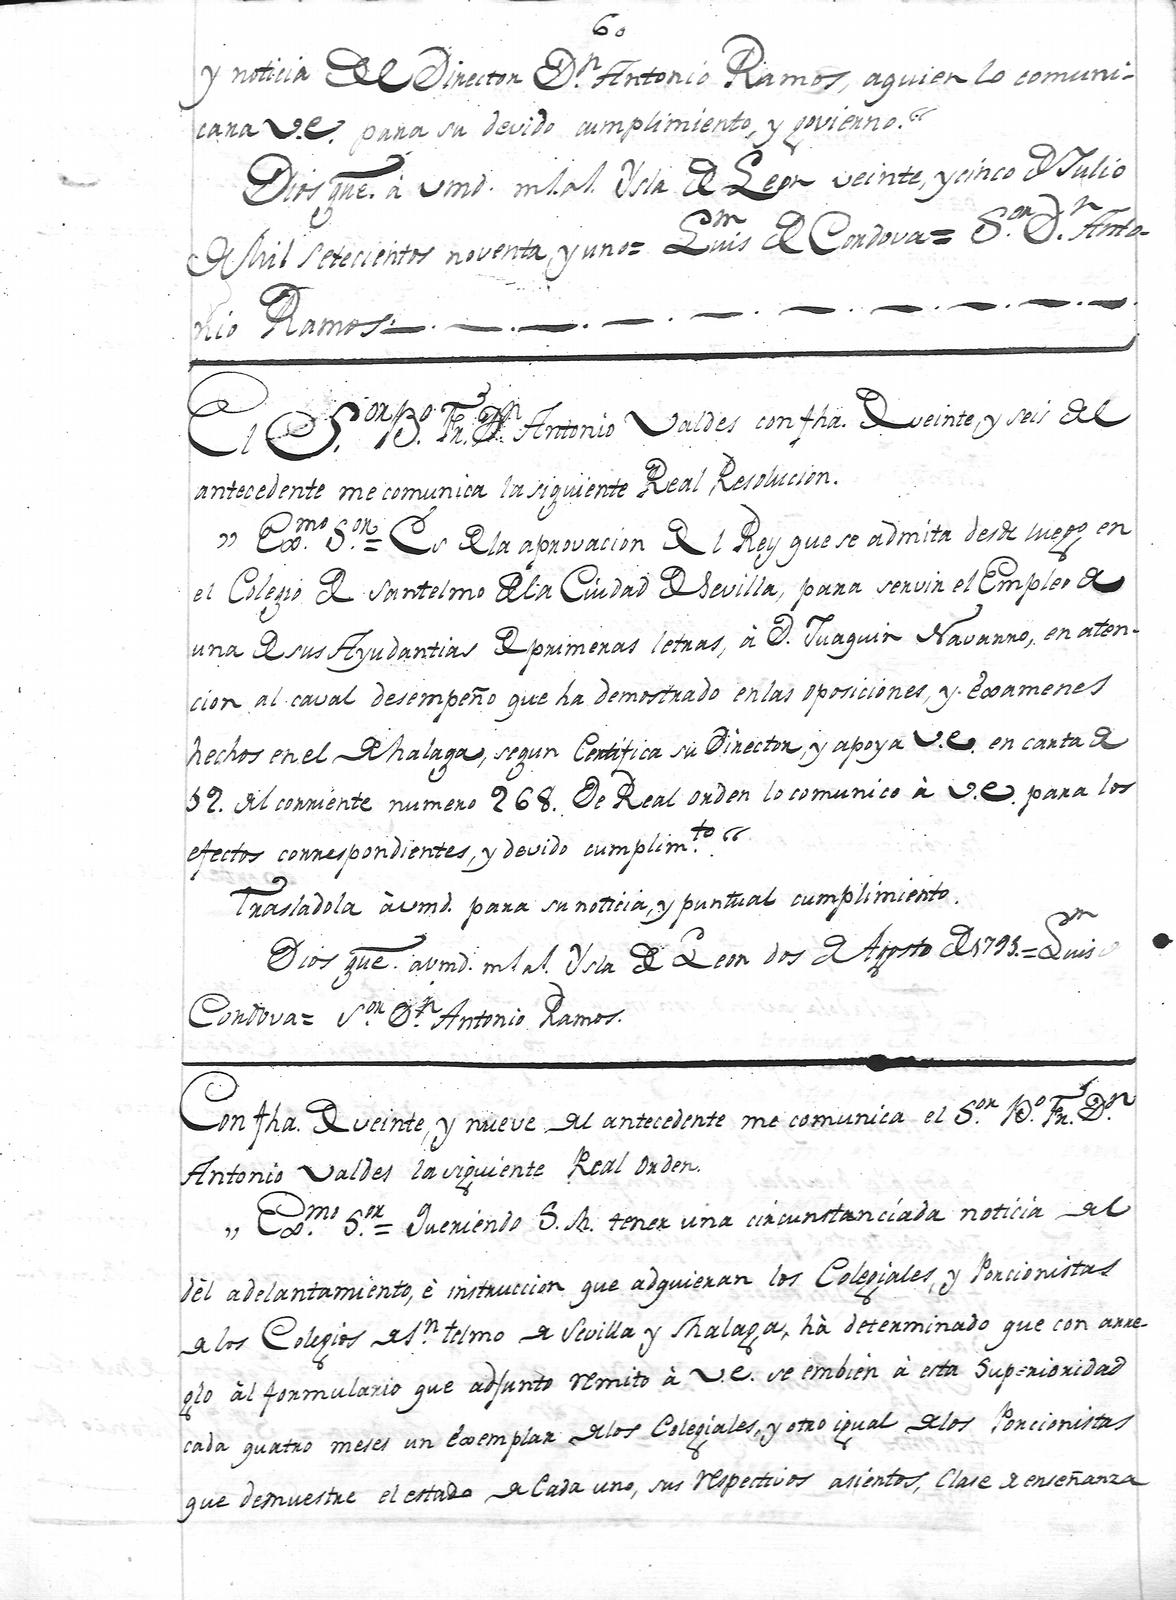 60
y noticia del Director Dn. Antonio Ramos, aquien lo comuni-
cara V.E. para su devido cumplimiento, y govierno."
Dios gue. à vmd. ms. as. Ysla de Leon veinte, y cinco de Julio
de Mil setecientos noventa, y uno= Luis de Cordova= Sor. Dn. Anto-
nio Ramos.
El Sor. Bo. Fr. Dn. Antonio Valdes con fha. de veinte, y seis del
antecedente me comunica la siguiente Real Resolucion.
" Exmo. Sor.= Es de la aprovacion del Rey que se admita desde luego en
el Colegio de Santelmo de la Ciudad de Sevilla, para servir el Empleo de
una de sus Ayudantias de primeras letras, à D. Juaquin Navarro, en aten-
cion al caval desempeño que ha demostrado en las oposiciones, y examenes
hechos en el de Malaga, segun Certifica su Director, y apoya V.E. en carta de
12. del corriente numero 268. De Real orden lo comunico à V.E. para los
efectos correspondientes, y devido cumplimto."
Trasladola à vmd. para su noticia, y puntual cumplimiento.
Dios gue. a vmd. ms. as. Ysla de Leon dos de Agosto de 1791.= Luis
Cordova= Sor. Dn. Antonio Ramos.
Con fha. de veinte, y nueve del antecedente me comunica el Sor. Bo. Fr. Don
Antonio Valdes la siguiente Real Orden.
" Exmo. Sor.= Queriendo S. M. tener una circunstanciada noticia del
dèl adelantamiento, è instruccion que adquieran los Colegiales, y Porcionistas
de los Colegios de Sn. telmo de Sevilla y Malaga, hà determinado que con arre-
glo àl formulario que adjunto remito à V.E. se embien à esta Superioridad
cada quatro meses un exemplar de los Colegiales, y otro igual de los Porcionistas
que demuestre el estado de Cada uno, sus respectivos asientos, Clase de enseñanza